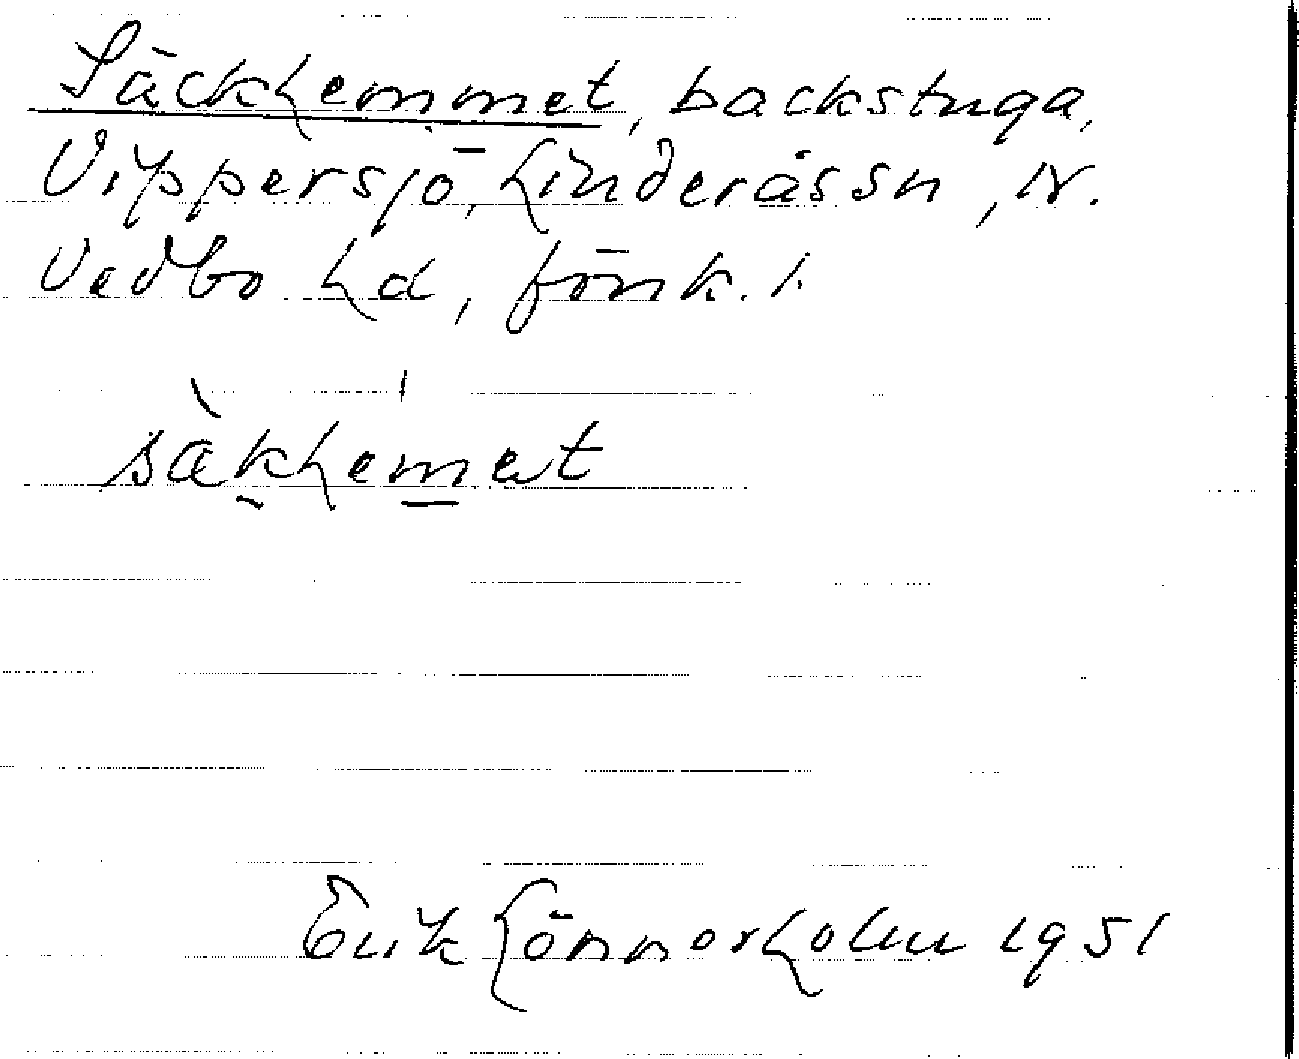 Säckhemmet, backstuga,
Vippersjö, Linderås sn, N.
Vedbo hd, Jönk. l.
säkhemet
Erik Lönnerholm 1951